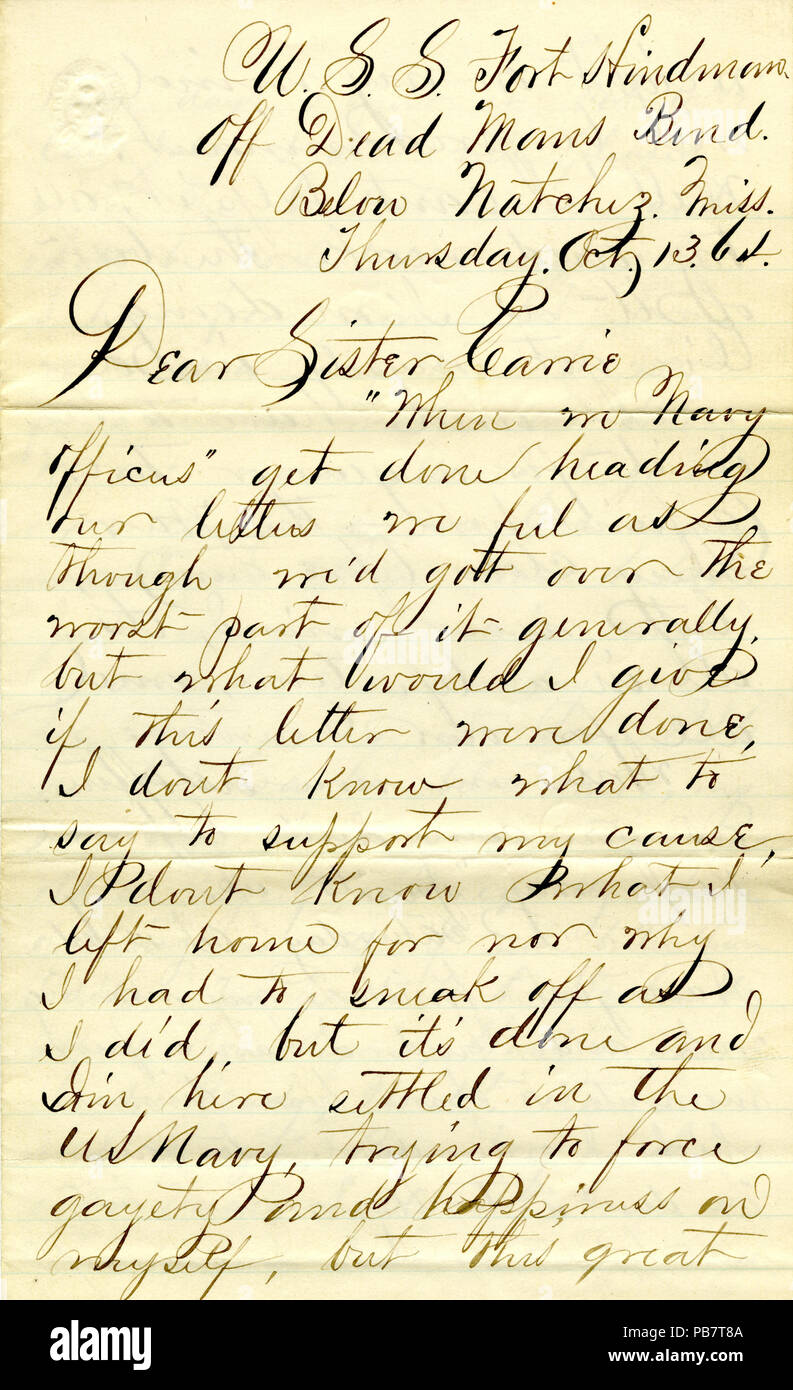 U. S. S. Fort Hindman.
Off Dead Mans Bend.
Below Natchez. Miss.
Thursday. Oct. 13. 64.
Dear Sister Carrie
"When we Navy
officers" get done heading
our letters we feel as
though we'd gott over the
worst part of it generally,
but what would I give
if this letter were done,
I dont know what to
say to support my cause,
I dont know what I
left home for nor why
I had to sneak off as
I did, but it's done and
I'm here settled in the
US Navy, trying to force
gayety and happiness on
myself, but this great
alamy
alamy
alamy
alamy
Image ID: PB7T8A
www.alamy.com